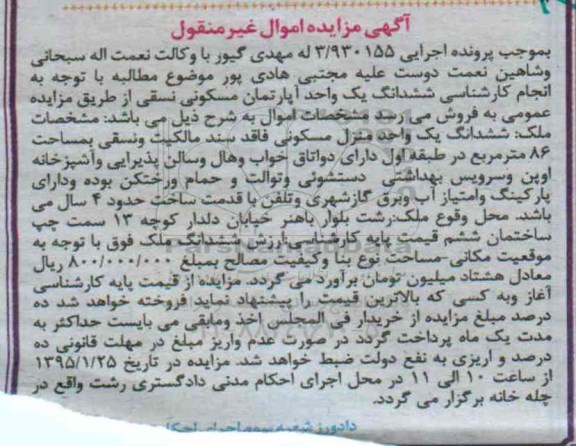 آگهی مزایده اموال غیر منقول
بموجب پرونده اجرایی ۳/۹۳۰۱۵۵ له مهدی گیور با وکالت نعمت اله سبحانی
وشاهین نعمت دوست علیه مجتبی هادی پور موضوع مطالبه با توجه به
انجام کارشناسی ششدانگ یک واحد آپارتمان مسکونی نسقی از طریق مزایده
عمومی به فروش می رسد مشخصات اموال به شرح ذیل می باشد: مشخصات
ملک: ششدانگ یک واحد منزل مسکونی فاقد سند مالکیت ونسقی بمساحت
۸۶ مترمربع در طبقه اول دارای دواتاق خواب وهال وسالن پذیرایی وآشپزخانه
اوپن وسرویس بهداشتی دستشوئی وتوالت و حمام ورختکن بوده ودارای
پارکینگ وامتیاز آب وبرق گازشهری وتلفن با قدمت ساخت حدود ۴ سال می
باشد. محل وقوع ملک:رشت بلوار باهنر خیابان دلدار کوچه ۱۳ سمت چپ
ساختمان ششم قیمت پایه کارشناسی:ارزش ششدانگ ملک فوق با توجه به
موقعیت مکانی-مساحت نوع بنا وکیفیت مصالح بمبلغ ۸۰۰/۰۰۰/۰۰۰ ریال
معادل هشتاد میلیون تومان برآورد می گردد. مزایده از قیمت پایه کارشناسی
آغاز وبه کسی که بالاترین قیمت را پیشنهاد نماید فروخته خواهد شد ده
درصد مبلغ مزایده از خریدار فی المجلس اخذ ومابقی می بایست حداکثر به
مدت یک ماه پرداخت گردد در صورت عدم واریز مبلغ در مهلت قانونی ده
درصد و اریزی به نفع دولت ضبط خواهد شد. مزایده در تاریخ ۱۳۹۵/۱/۲۵
از ساعت ۱۰ الی ۱۱ در محل اجرای احکام مدنی دادگستری رشت واقع در
چله خانه برگزار می گردد.
دادورز شعبه سوم اجرای احکا